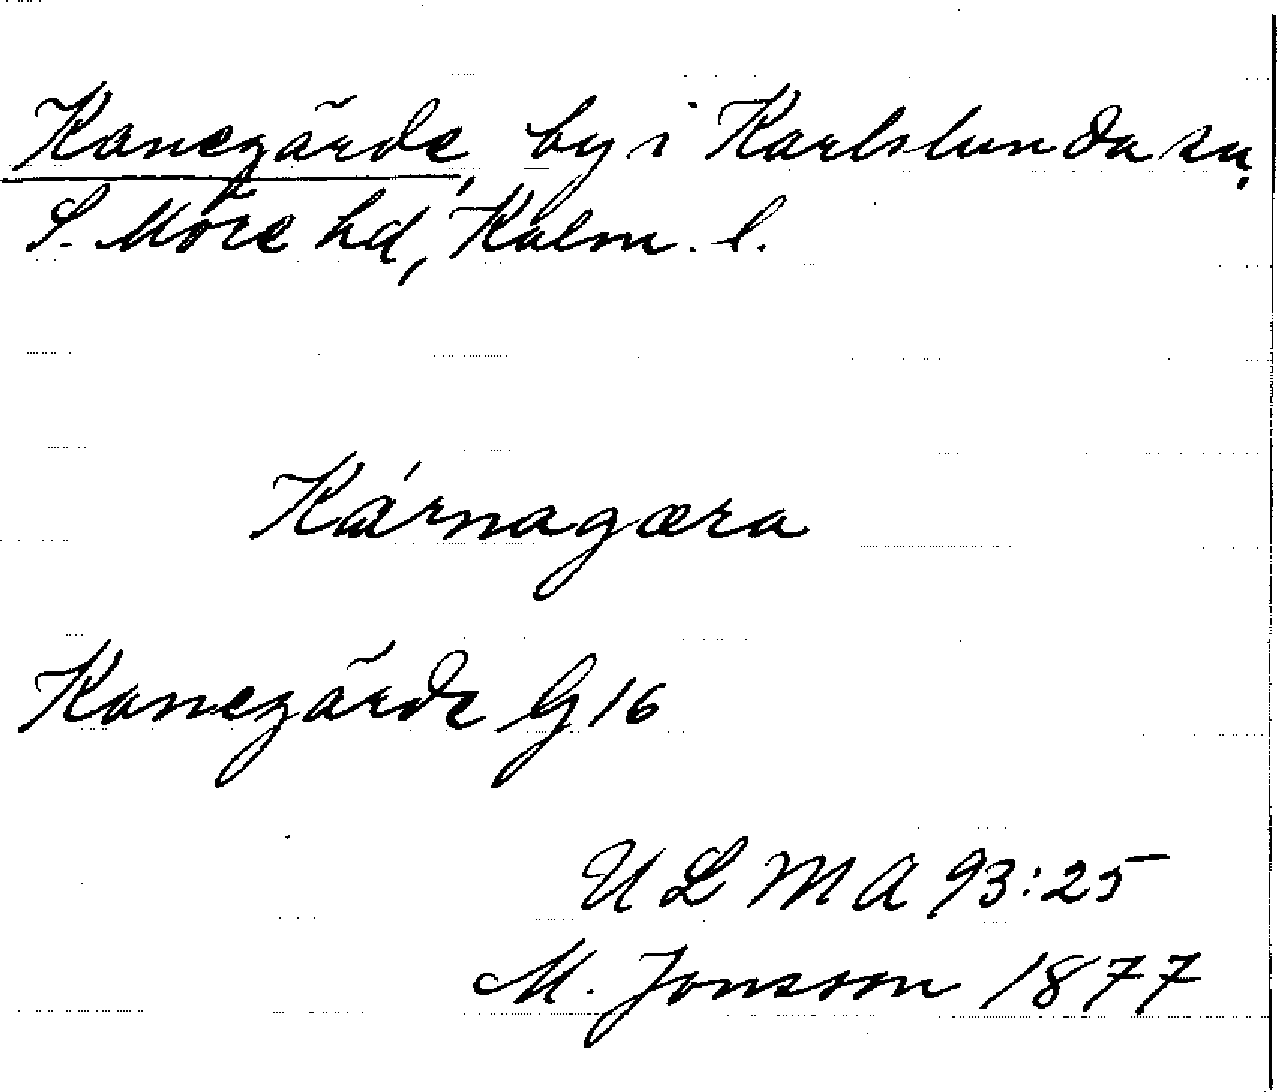 Kanegärde, by i Karlslunda sn,
S. Möre hd, Kalm. l.
Kárnagæra
Kanegärde G 16
ULMA 93:25
M. Jonsson 1877